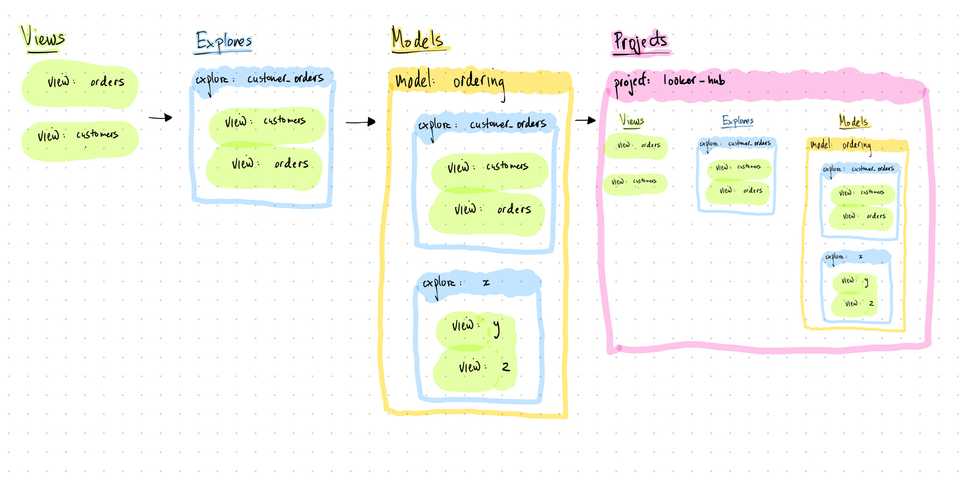 Views
view: orders
view: customers
Explores
explore: customer_orders
view: customers
view: orders
Models
model: ordering
explore: customer_orders
view: customers
view: orders
explore: x
view: y
view: z
Projects
project: looker-hub
Views
view: orders
view: customers
Explores
explore: customer_orders
view: customers
view: orders
Models
model: ordering
explore: customer_orders
view: customers
view: orders
explore: x
view: y
view: z